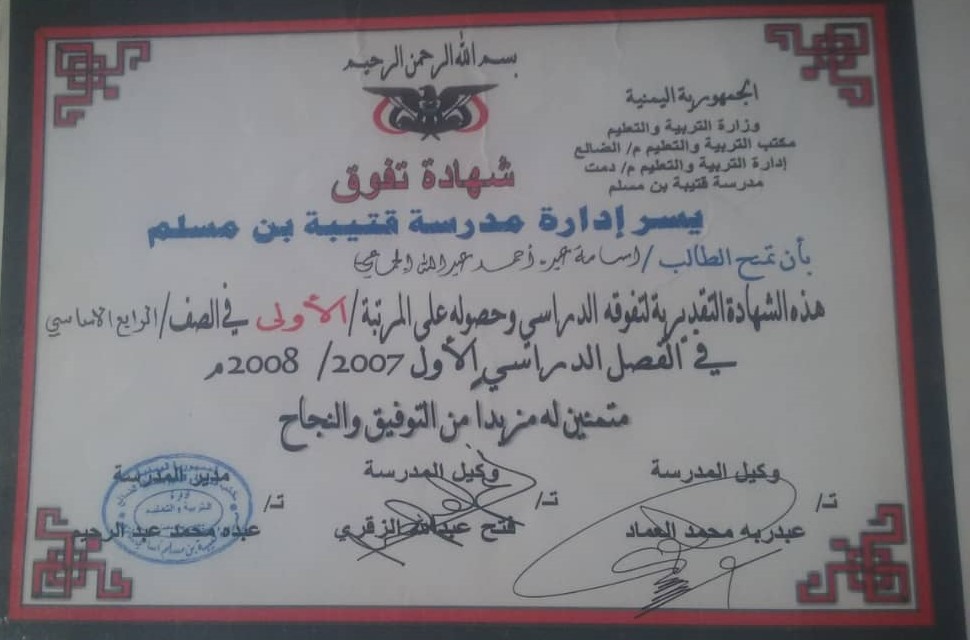 بسم الله الرحمن الرحيم
الجمهورية اليمنية
وزارة التربية والتعليم
مكتب التربية والتعليم م/ الضالع
إدارة التربية والتعليم م/ دمت
مدرسة قتيبة بن مسلم
شهادة تفوق
يسر إدارة مدرسة قتيبة بن مسلم
بأن تمنح الطالب / اسامة أحمد عبدالله
هذه الشهادة التقديرية لتفوقه الدراسي وحصوله على المرتبة / الأولى في الصف / الرابع الاساسي
في الفصل الدراسي الأول 2007 / 2008م
متمنين له مزيدا من التوفيق والنجاح
وكيل المدرسة
ت/
عبدربه محمد العماد
وكيل المدرسة
ت/
فتح عبدالله الزقري
مدير المدرسة
ت/
عبده محمد عبد الرحيم
وزارة
التربية والتعليم